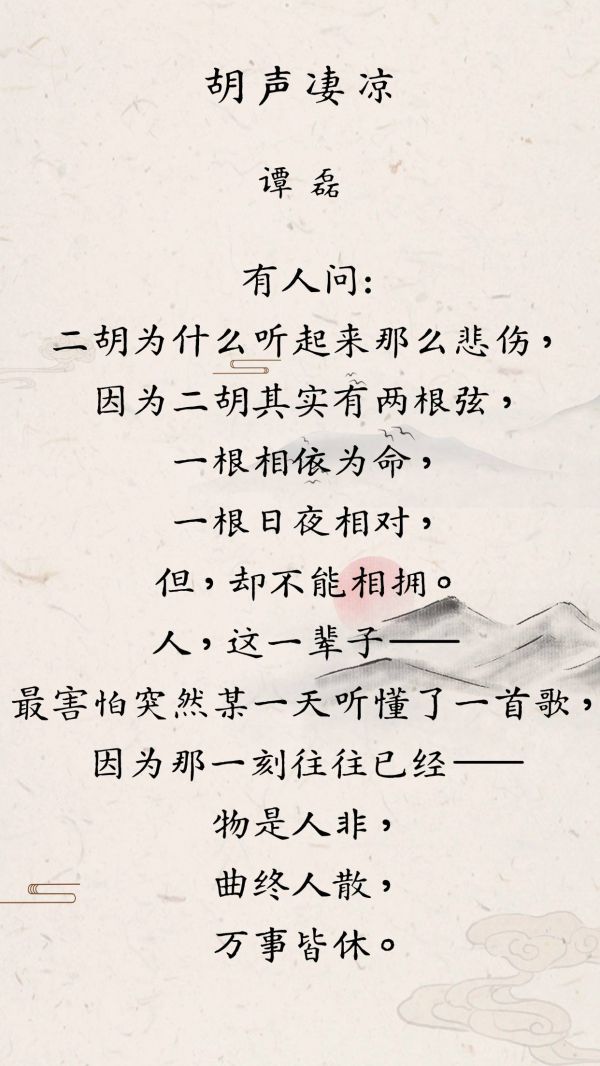 胡声凄凉
谭磊
有人问:
二胡为什么听起来那么悲伤，
因为二胡其实有两根弦，
一根相依为命，
一根日夜相对，
但，却不能相拥。
人，这一辈子——
最害怕突然某一天听懂了一首歌，
因为那一刻往往已经——
物是人非，
曲终人散，
万事皆休。